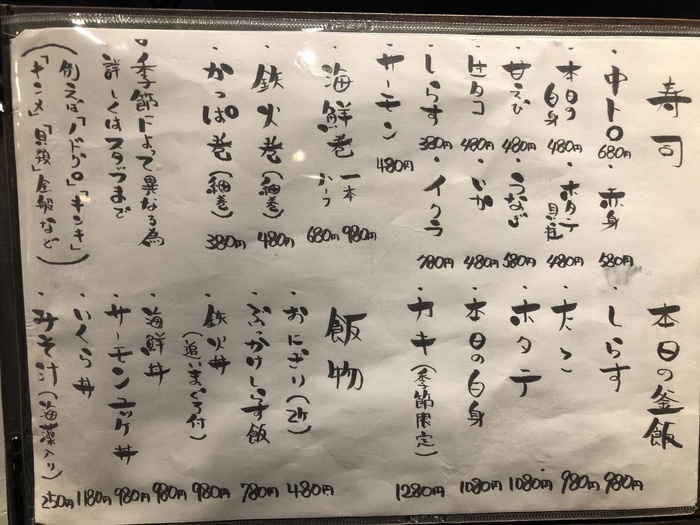 寿司
・中トロ 680円 ・赤身 580円
・本日の白身 480円 ・ホタテ貝柱 480円
・甘えび 480円 ・うなぎ 580円
・生タコ 480円 ・いか 480円
・しらす 380円 ・イクラ 780円
・サーモン 480円
・海鮮巻 一本 980円
ハーフ 680円
・鉄火巻(細巻) 480円
・かっぱ巻(細巻) 380円
季節によって異なる為
詳しくはスタッフまで
(例えば「ノドグロ」「キンキ」
「キンメ」「貝類」全般など)
本日の釜飯
・しらす 980円
・たこ 980円
・ホタテ 1080円
・本日の白身 1080円
・カキ(季節限定) 1280円
飯物
・おにぎり(2ケ) 480円
・ぶっかけしらす飯 780円
・鉄火丼(追いまぐろ付) 980円
・海鮮丼 980円
・サーモンユッケ丼 980円
・いくら丼 1180円
・みそ汁(海藻入り) 250円